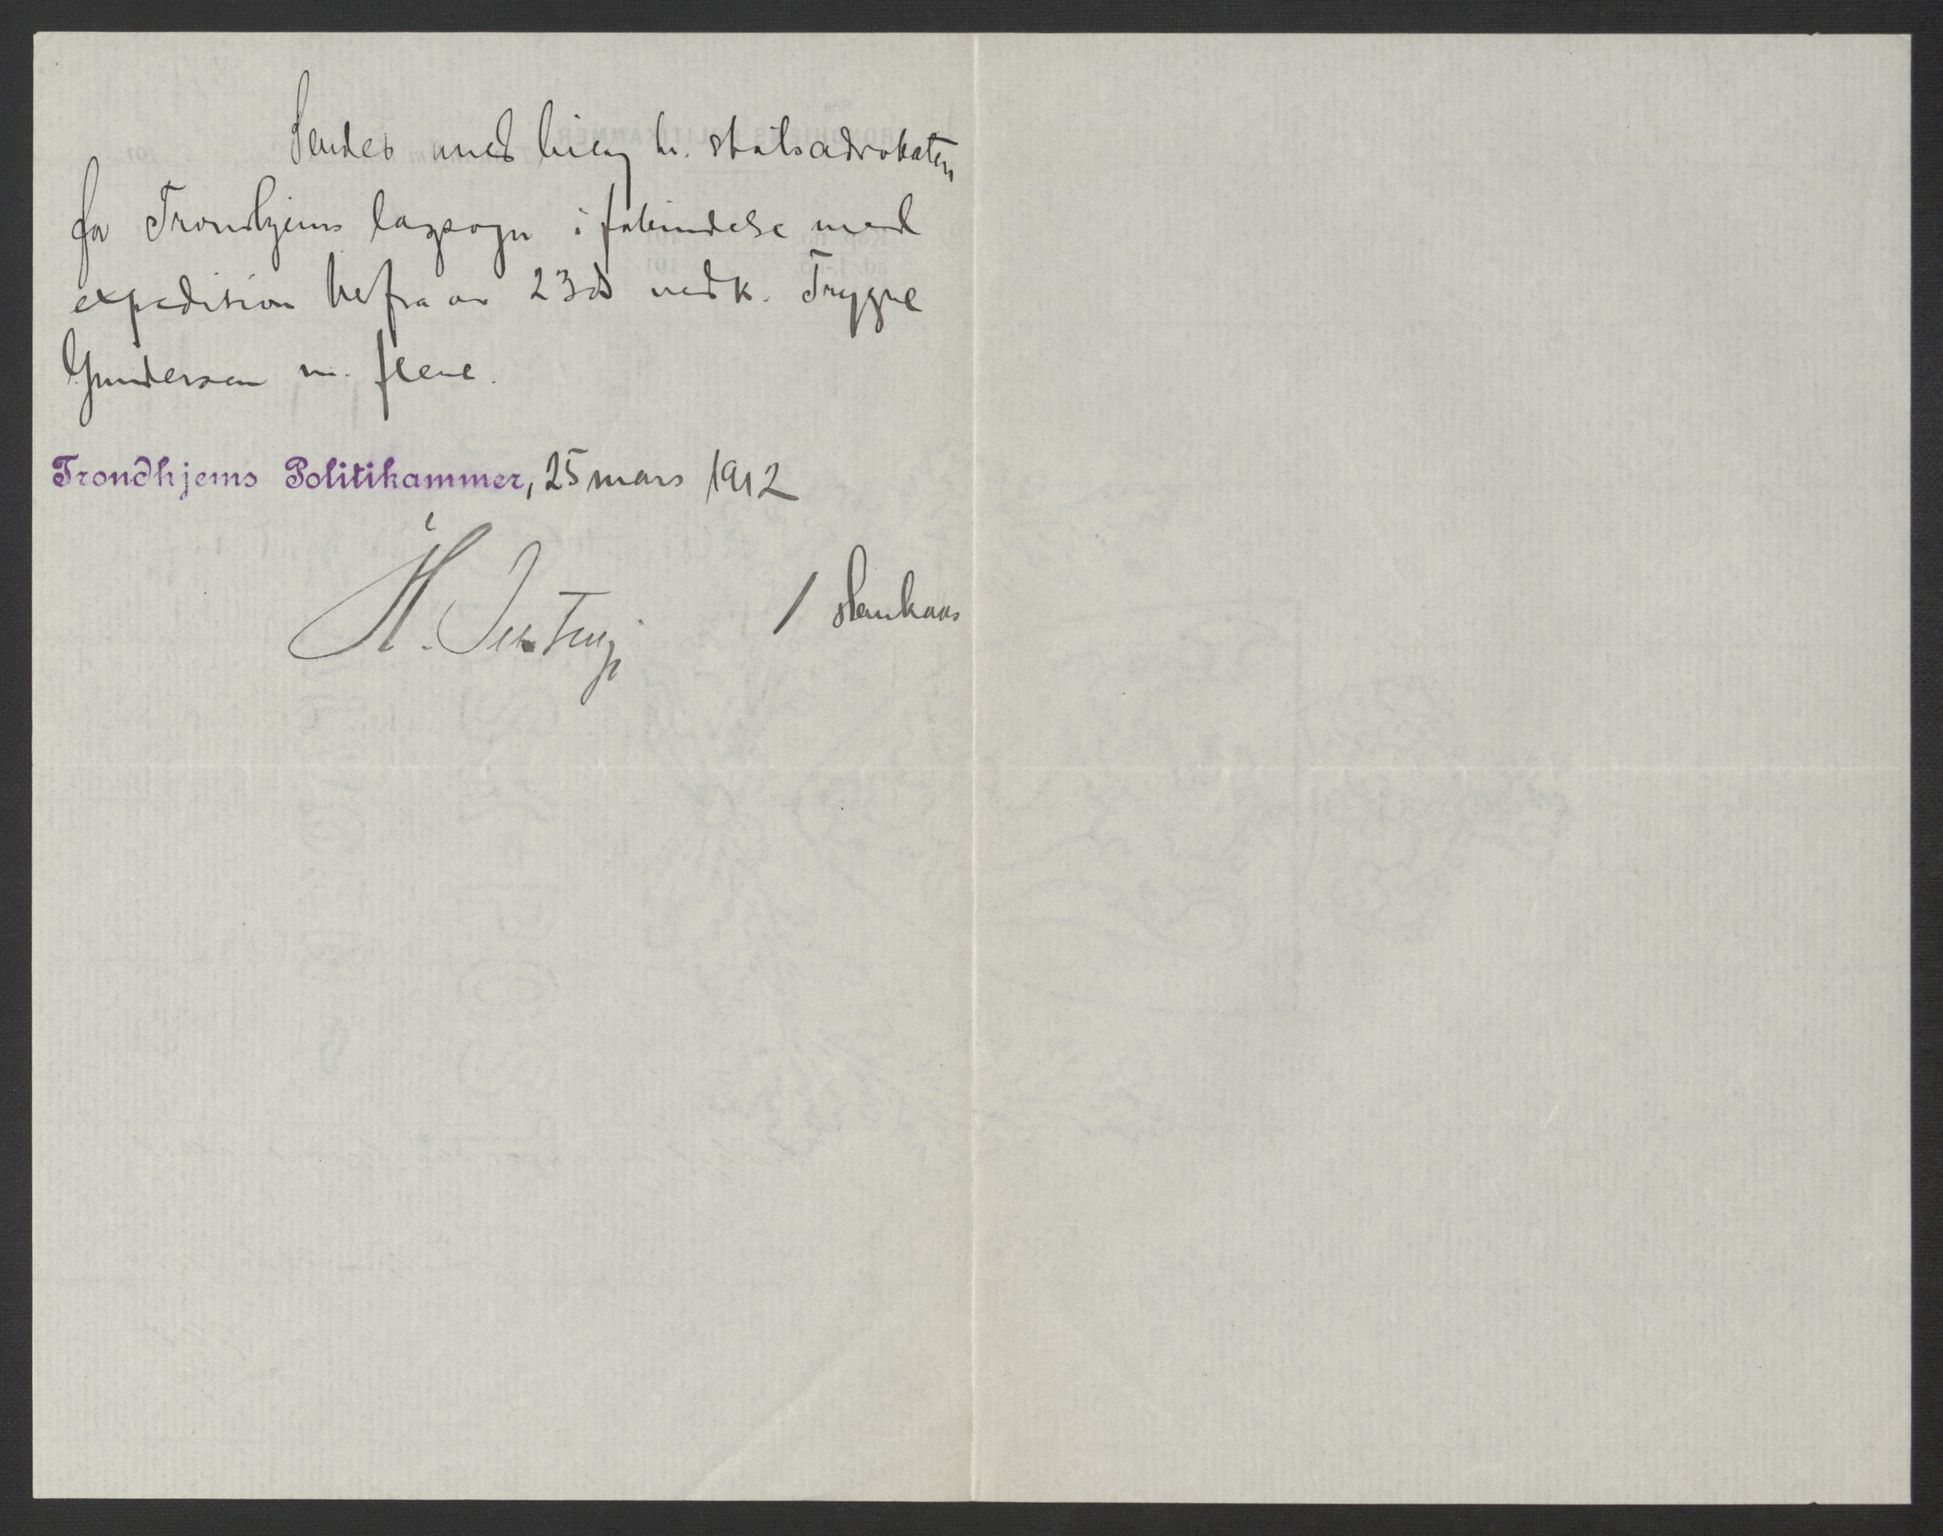 Sendes med bilag hr. statsadvokaten
for Trondhjems lagsogn i forbindelse med
expedition herfra av 23ds vedk. Trygve
Gundersen m. flere.
Trondhjems Politikammer, 25 mars 1912
H.
/